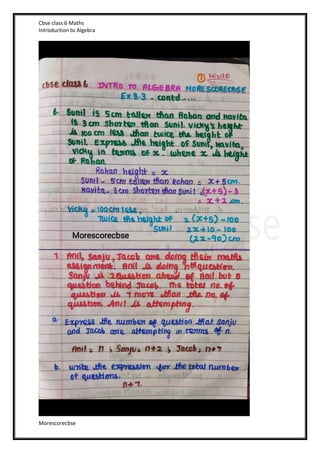 Cbse class 6 Maths
Introduction to Algebra
① Write
cbse class 6 INTRO TO ALGEBRA MORESCORECBSE
Ex 8.3 - contd.....
6. Sunil is 5cm taller than Rohan and Kavita
is 3cm Shorter than Sunil. Vicky's height
is 100 cm less than twice the height of
Sunil. Express the height of Sunil, Kavita,
Vicky in terms of x. where x is height
of Rohan.
Rohan height = x
Sunil - 5cm taller than Rohan = x+5cm.
Kavita - 3cm shorter than Sunil (x+5)-3
= x+2 cm.
Vicky = 100cm less,
Twice the height of 2(x+5)-100
Sunil 2x+10-100
(2x-90)cm
Morescorecbse
7. Anil, Sanju, Jacob are doing their maths
assignment. Anil is doing nth question.
Sanju is 2 question ahead of Anil but 5
question behind Jacob. The total no. of
question is 7 more than the no. of
question Anil is attempting.
a. Express the number of question that Sanju
and Jacob are attempting in terms of n.
Anil = n ; Sanju = n+2 ; Jacob = n+7
b. write the expression for the total number
of questions.
n+7.
Morescorecbse